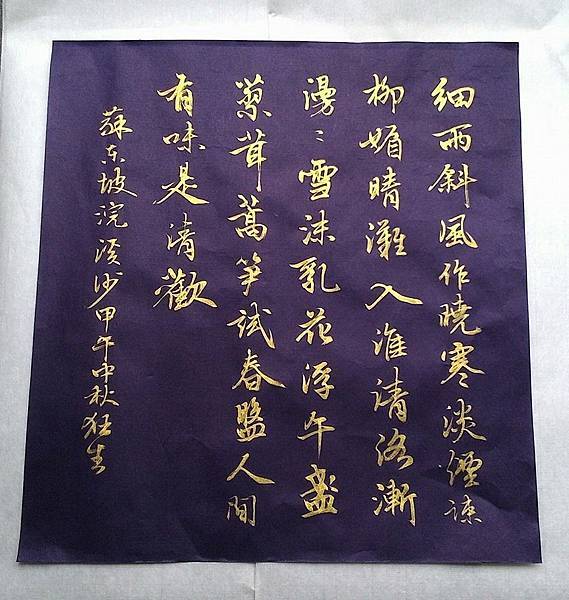 細雨斜風作曉寒淡煙疎
柳媚晴灘入淮清洛漸
漫〻雪沫乳花浮午盞
蓼茸蒿笋試春盤人間
有味是清歡
蘇東坡浣溪沙甲午中秋狂生